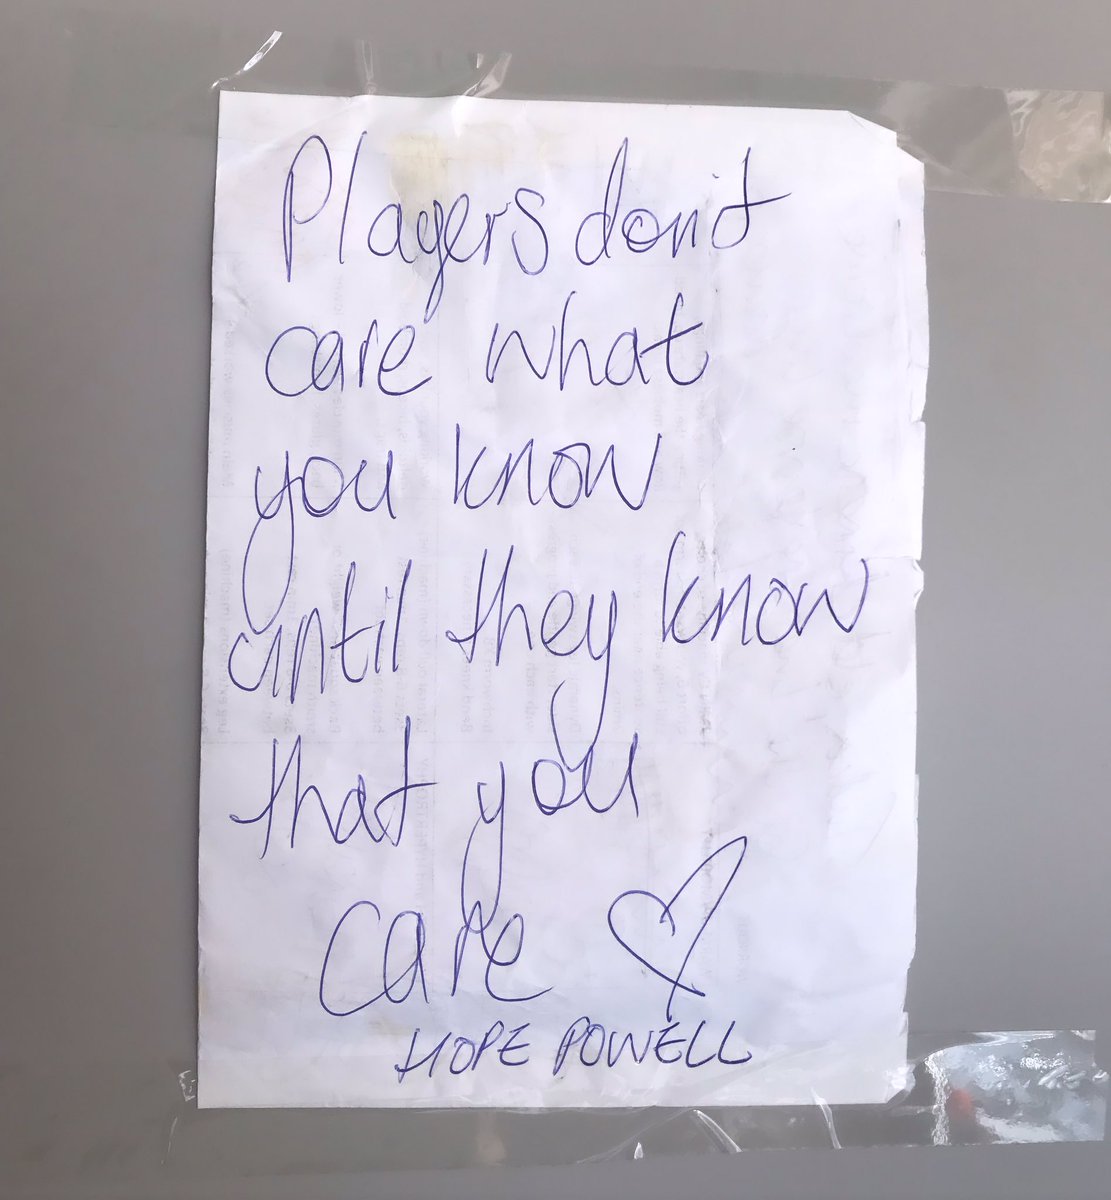 Players don't
care what
you know
until they know
that you
care ♡
HOPE POWELL